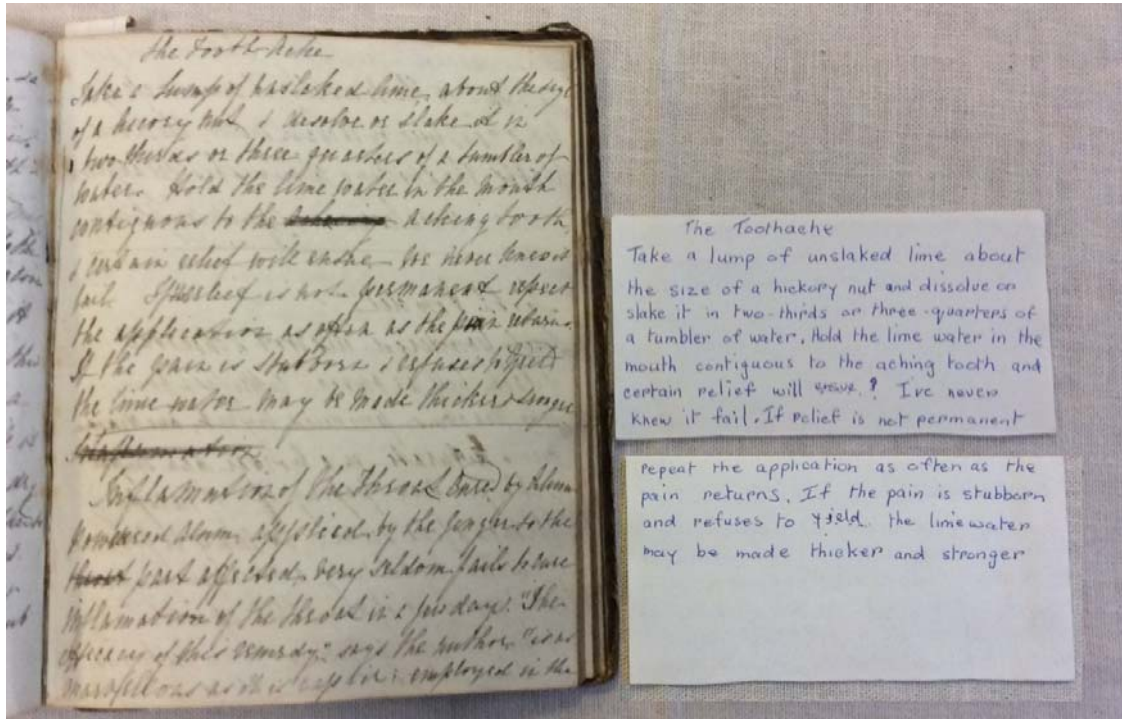 The Tooth Ache
Take a Lump of unslaked lime, about the size
of a hicory nut & desolve or slake it in
two thirds or three quarters of a tumbler of
water. Hold the lime water in the mouth
contiguous to the aching tooth
& certain relief will ensue. We never knew it
fail. If relief is not permanent repeat
the application as often as the pain returns.
If the pain is stubborn & refuses to yield
the lime water may be made thicker & stronger
Inflamation
Inflamation of the Throat Cured by Alum
Powdered Alum applied by the finger to the
throat part affected, very seldom fails to cure
inflamation of the throat in a few days. "The
efficacy of this remedy," says the author "is as
marvellous as it is explic employed in the
The Toothache
Take a lump of unslaked lime about
the size of a hickory nut and dissolve or
slake it in two-thirds or three-quarters of
a tumbler of water. Hold the lime water in the
mouth contiguous to the aching tooth and
certain relief will ensue.? I've never
knew it fail. If relief is not permanent
repeat the application as often as the
pain returns. If the pain is stubborn
and refuses to yield the limewater
may be made thicker and stronger